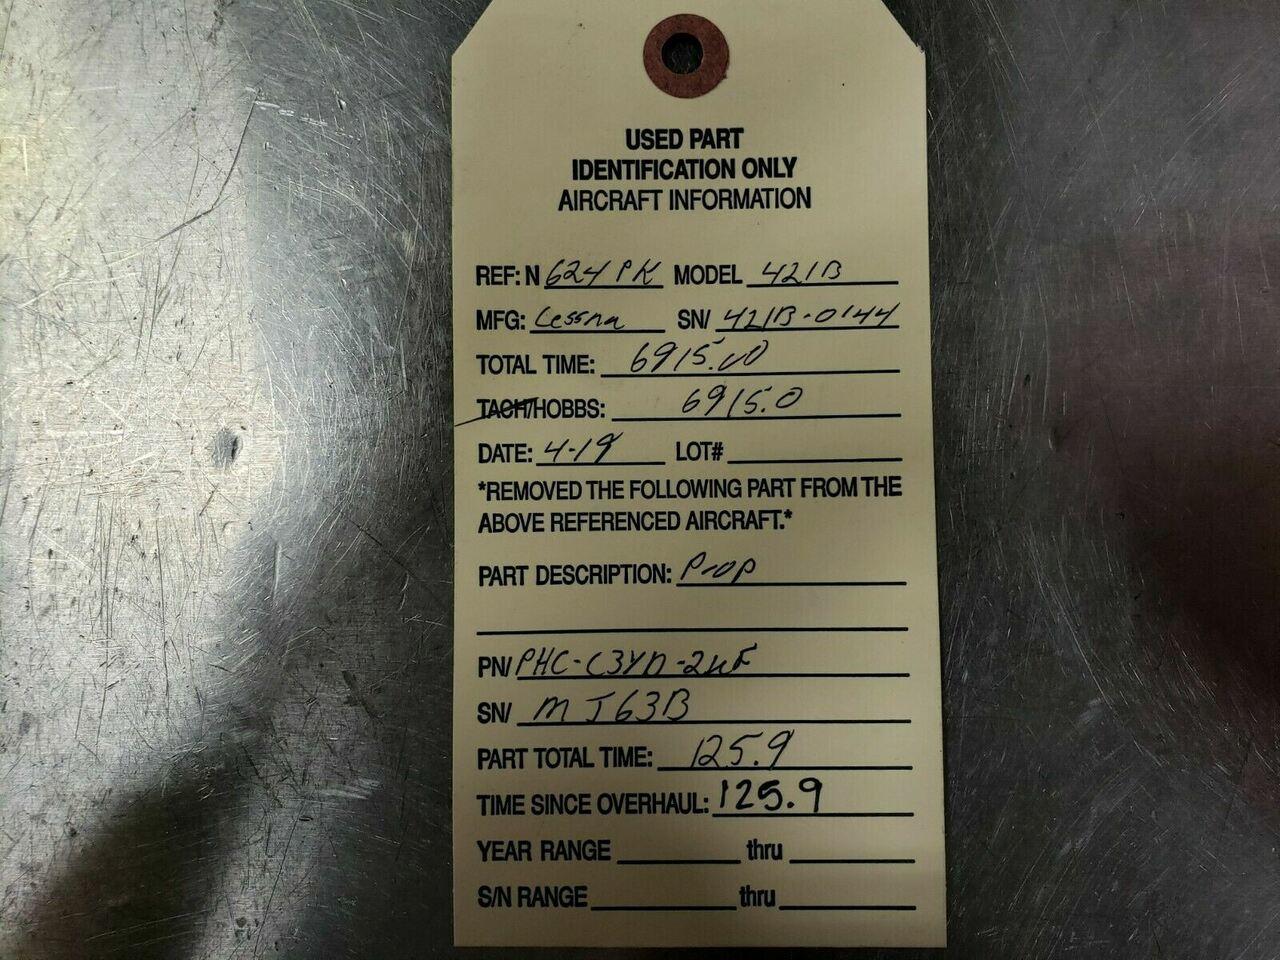 USED PART
IDENTIFICATION ONLY
AIRCRAFT INFORMATION
REF: N 624PK MODEL 421B
MFG: Cessna SN/ 421B-0144
TOTAL TIME: 6915.00
TACH/HOBBS: 6915.0
DATE: 4-19 LOT#
*REMOVED THE FOLLOWING PART FROM THE
ABOVE REFERENCED AIRCRAFT.*
PART DESCRIPTION: Prop
PN/ PHC-C3YD-2UF
SN/ MJ63B
PART TOTAL TIME: 125.9
TIME SINCE OVERHAUL: 125.9
YEAR RANGE thru
S/N RANGE thru